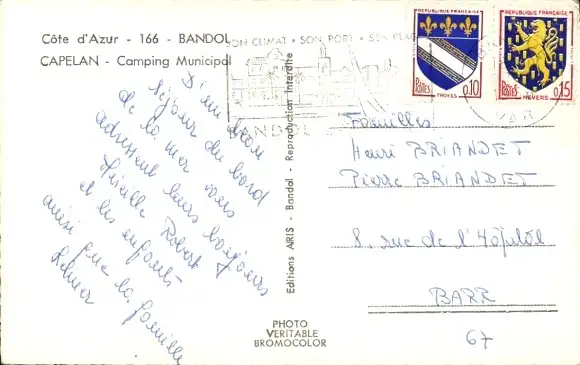 Côte d'Azur - 166 - BANDOL
CAPELAN - Camping Municipal
SON CLIMAT - SON PORT - SON PLAGE
BANDOL
VAR
REPUBLIQUE FRANÇAISE
Postes 0,10
TROYES
REPUBLIQUE FRANÇAISE
Postes 0,15
NEVERS
D'un bon
séjour du bord
de la mer vous
adressent leurs bonjours
Mireille Robert
et les enfants
ainsi que la famille
Editions ARIS - Bandol - Reproduction Interdite
PHOTO
VERITABLE
BROMOCOLOR
Familles
Henri BRIANDET
Pierre BRIANDET
8, rue de l'Hôpital
BARR
67